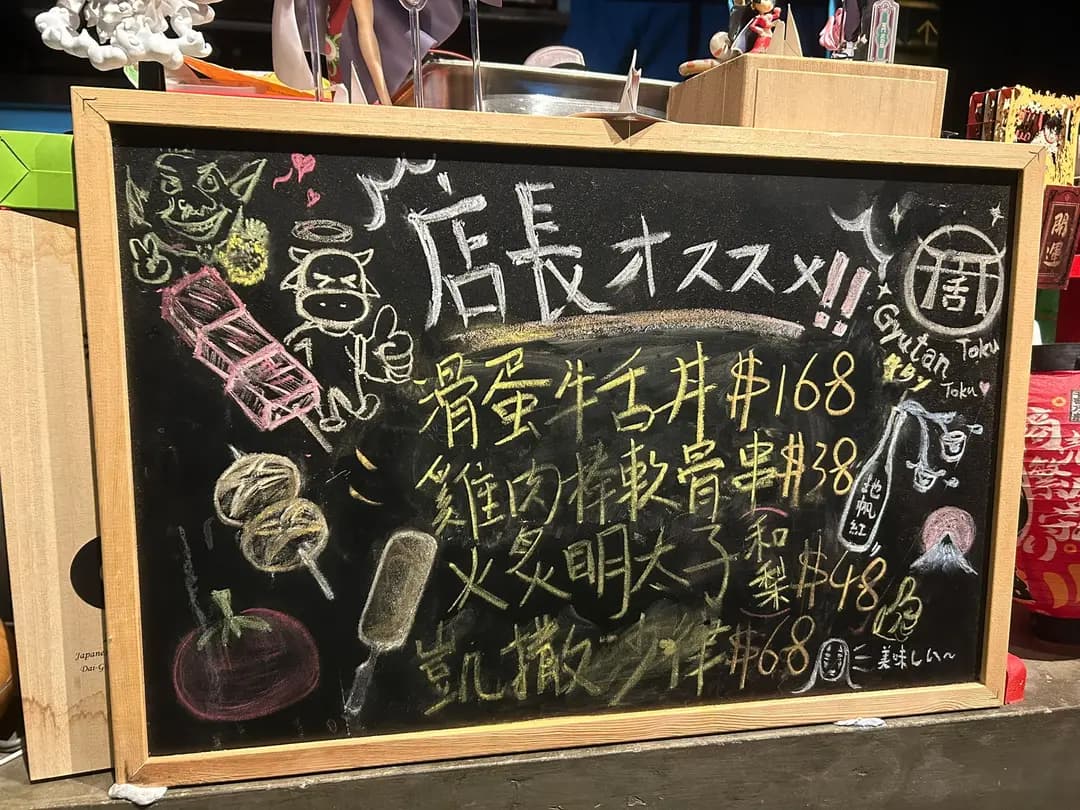 店長オススメ!!
滑蛋牛舌丼$168
雞肉棒軟骨串$38
火炙明太子(和梨)$48
凱撒沙律$68
舌
Gyutan Toku
牛タン Toku
地帆紅
美味しい~
開運
Japane
Dai-G